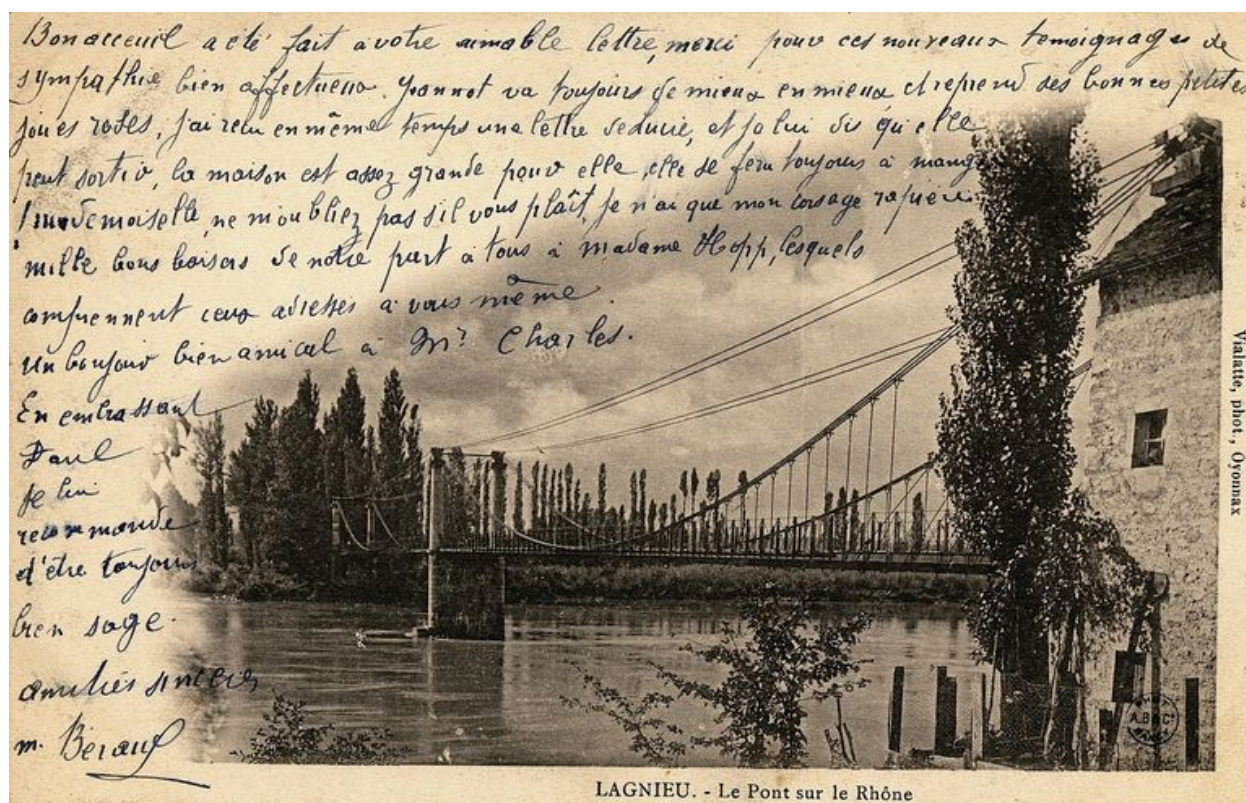 Bon acceuil a été fait à votre aimable lettre, merci pour ces nouveaux temoignages de
sympathie bien affectueux. Jeannot va toujours de mieux en mieux et reprend ses bonnes petites
joues roses, j'ai recu en même temps une lettre et je lui dis qu'elle
peut sortir, la maison est assez grande pour elle, elle se fera toujours à
mademoiselle, ne m'oubliez pas s'il vous plaît, je n'ai que mon corsage
mille bons baisers de notre part à tous à madame Hopp, lesquels
comprennent ceux adressés à vous même.
Un bonjour bien amical à Mr Charles.
En embrassant
Paul
je lui
recommande
d'être toujours
bien sage.
amitiés sincères
m. Beraud
Vialatte, phot., Oyonnax
A.B & Cie
NANCY
LAGNIEU. - Le Pont sur le Rhône